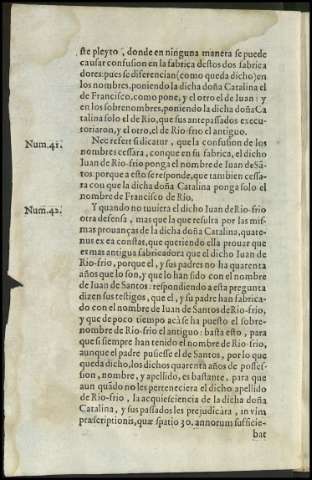 ste pleyto, donde en ninguna manera se puede
causar confusion en la fabrica destos dos fabrica
dores: pues se diferencian (como queda dicho) en
los nombres, poniendo la dicha doña Catalina el
de Francisco, como pone, y el otro el de Iuan: y
en los sobrenombres, poniendo la dicha doña Ca
talina solo el de Rio, que sus antepassados execu-
toriaron, y el otro, el de Rio-frio el antiguo.
Num. 41. Nec refert si dicatur, que la confusion de los
nombres cessara, conque en su fabrica, el dicho
Iuan de Rio-frio ponga el nombre de Iuan de Sã-
tos: porque a esto se responde, que tambien cessa-
ra con que la dicha doña Catalina ponga solo el
nombre de Francisco de Rio.
Num. 42. Y quando no tuuiera el dicho Iuan de Rio-frio
otra defensa, mas que la que resulta por las mis-
mas prouanças de la dicha doña Catalina, quate-
nus ex ea constat, que queriendo ella prouar que
es mas antigua fabricadora que el dicho Iuan de
Rio-frio, porque el, y sus padres no ha quarenta
años que lo son, y que lo han sido con el nombre
de Iuan de Santos: respondiendo a esta pregunta
dizen sus testigos, que el, y su padre han fabrica-
do con el nombre de Iuan de Santos de Rio-frio,
y que de poco tiempo acà se ha puesto el sobre-
nombre de Rio-frio el antiguo: basta esto, para
que si siempre han tenido el nombre de Rio-frio,
aunque el padre pusiesse el de Santos, por lo que
queda dicho, los dichos quarenta años de posses-
sion, nombre, y apellido, es bastante, para que
aun quãdo no les perteneciera el dicho apellido
de Rio-frio, la acquiesciencia de la dicha doña
Catalina, y sus passados les prejudicára, in vim
præscriptionis, quæ spatio 30. annorum sufficie-
bat